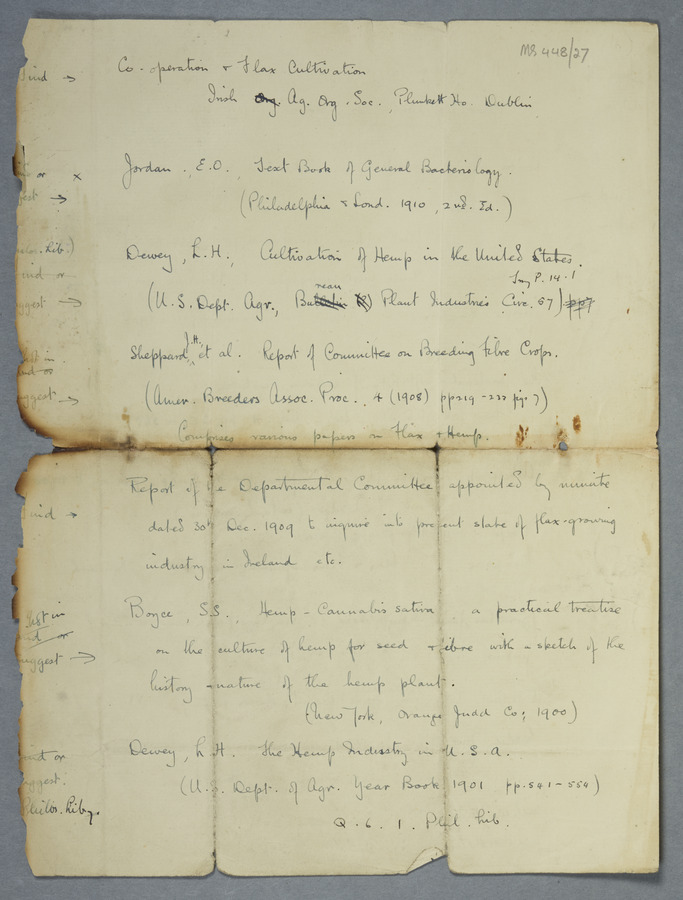 MS 448/27
Co-operation & Flax Cultivation
Irish Org. Ag. Org. Soc., Plunkett Ho. Dublin
find →
Jordan., E.O., Text Book of General Bacteriology.
or x
→
(Philadelphia & Lond. 1910, 2nd. Ed.)
Lib.)
Dewey, L.H., Cultivation of Hemp in the United States.
or
Imp P. 14.1
reau
→
(U.S. Dept. Agr., Bulletin Plant Industries Circ. 57) pp7
J.H.
Sheppard, et al. Report of Committee on Breeding Fibre Crops.
in
or
→
(Amer. Breeders Assoc. Proc., 4 (1908) pp219-222 figs 7)
Comprises various papers on Flax & Hemp.
Report of the Departmental Committee appointed by minute
→
dated 30th Dec. 1909 to inquire into present state of flax-growing
industry in Ireland etc.
Boyce, S.S., Hemp - Cannabis sativa a practical treatise
list in
or
on the culture of hemp for seed & fibre with a sketch of the
suggest →
history & nature of the hemp plant.
(New York, Orange Judd Co; 1900)
Dewey, L.H. The Hemp Industry in U.S.A.
or
(U.S. Dept. of Agr. Year Book 1901 pp. 541-554)
Philos. Liby.
Q. 6. 1. Phil. Lib.